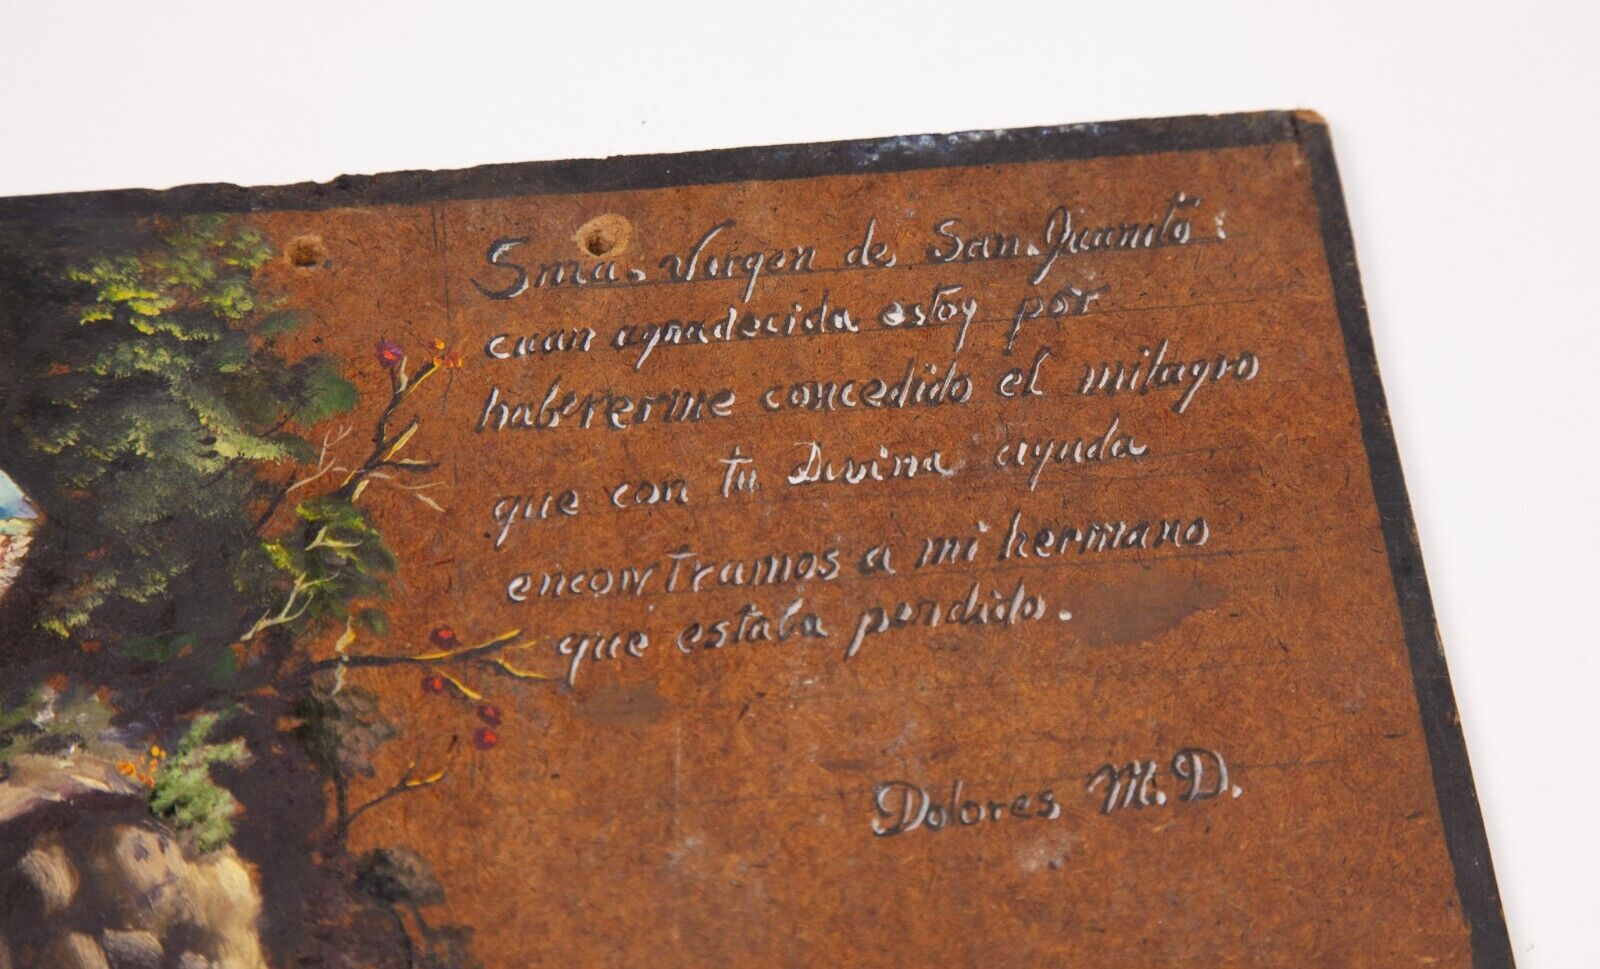 Sma. Virgen de San Juanito:
cuan agradecida estoy por
habererme concedido el milagro
que con tu Divina ayuda
encontramos a mi hermano
que estaba perdido.
Dolores M. D.